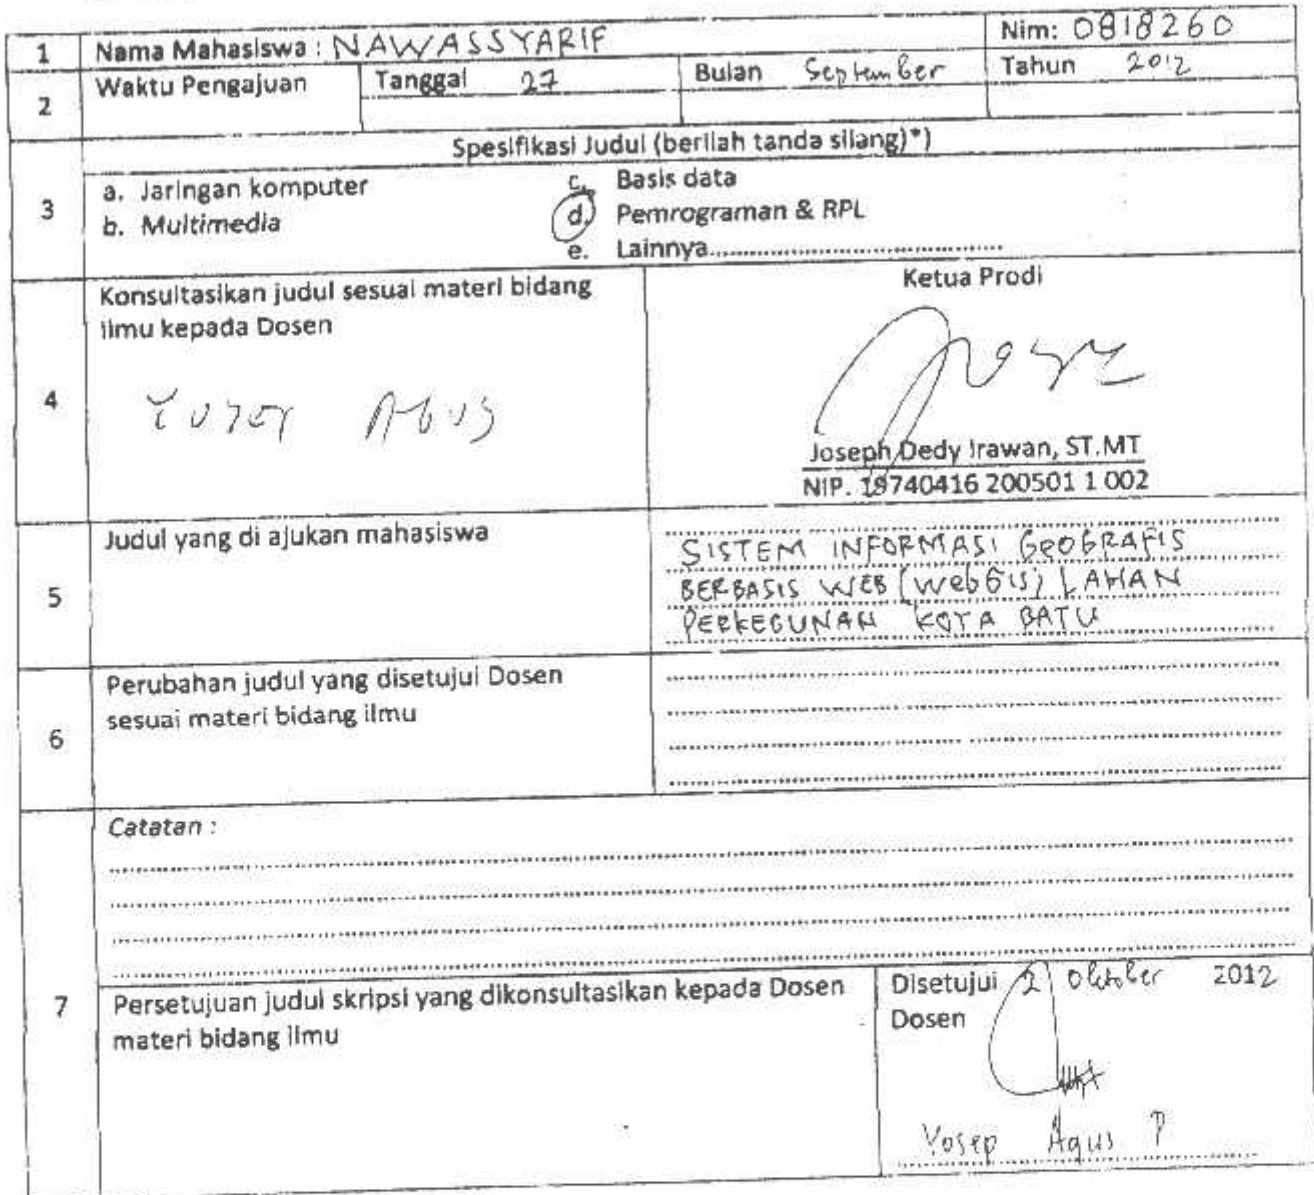 1 Nama Mahasiswa : NAWASSYARIF Nim: 0818260
2 Waktu Pengajuan Tanggal 27 Bulan September Tahun 2012
Spesifikasi Judul (berilah tanda silang)*)
3
a. Jaringan komputer c. Basis data
b. Multimedia d. Pemrograman & RPL
e. Lainnya..............................
4
Konsultasikan judul sesuai materi bidang
ilmu kepada Dosen
Ketua Prodi
Joseph Dedy Irawan, ST.MT
NIP. 19740416 200501 1 002
5 Judul yang di ajukan mahasiswa
SISTEM INFORMASI GEOGRAFIS
BERBASIS WEB (WebGIS) LAHAN
PERKEBUNAN KOTA BATU
6
Perubahan judul yang disetujui Dosen
sesuai materi bidang ilmu
7
Catatan :
Persetujuan judul skripsi yang dikonsultasikan kepada Dosen
materi bidang ilmu
Disetujui 2 Oktober 2012
Dosen
Yosep Agus P